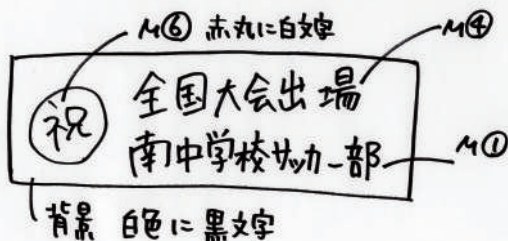 M⑥ 赤丸に白文字
M④
祝
全国大会出場
南中学校サッカー部
M①
背景 白色に黒文字